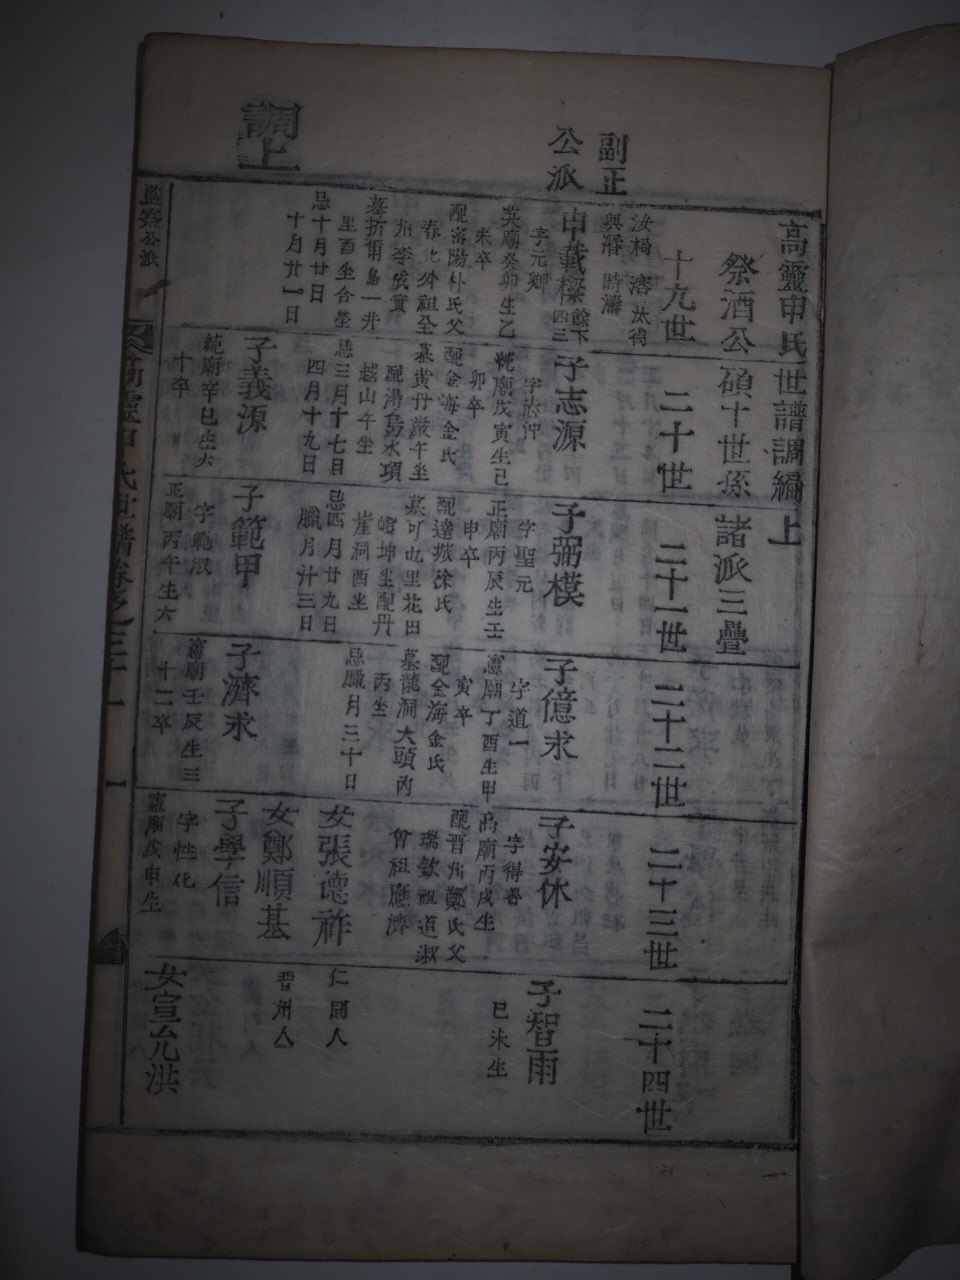 副正
公派
調上
高靈申氏世譜調編上
祭酒公碩十世孫諸派三疊
十九世
二十世
二十一世
二十二世
二十三世
二十四世
汝楫 溶 汰得
與潛 時濤
申載樑 餘下四三
字元卿
英廟癸卯生乙
未卒
配密陽朴氏父
春化外祖全
州李成實
墓折爾島一井
里酉坐合塋
忌十月廿日
十月廿一日
子志源
字志仲
純廟戊寅生己
卯卒
配金海金氏
墓黃丹嚴午坐
配湯島水項
越山午坐
忌三月十七日
四月十九日
子義源
純廟辛巳生六
十卒
子弼模
字聖元
正廟丙辰生壬
申卒
配達城徐氏
墓可也里花田
嶝坤坐配丹
崖洞酉坐
忌四月廿九日
臘月廿三日
子範甲
字範淑
正廟丙午生六
子億求
字道一
憲廟丁酉生甲
寅卒
配金海金氏
墓龍洞大頭內
丙坐
忌臘月三十日
子濟求
憲廟壬辰生三
十二卒
子安休
字得善
高廟丙戌生
配晋州鄭氏父
瑞欽祖道淑
曾祖應濟
女張德祚
仁同人
女鄭順基
晋州人
子學信
字性化
憲廟戊申生
子智雨
己未生
女宣允洪
監察公派
高靈申氏世譜卷之三十一 一